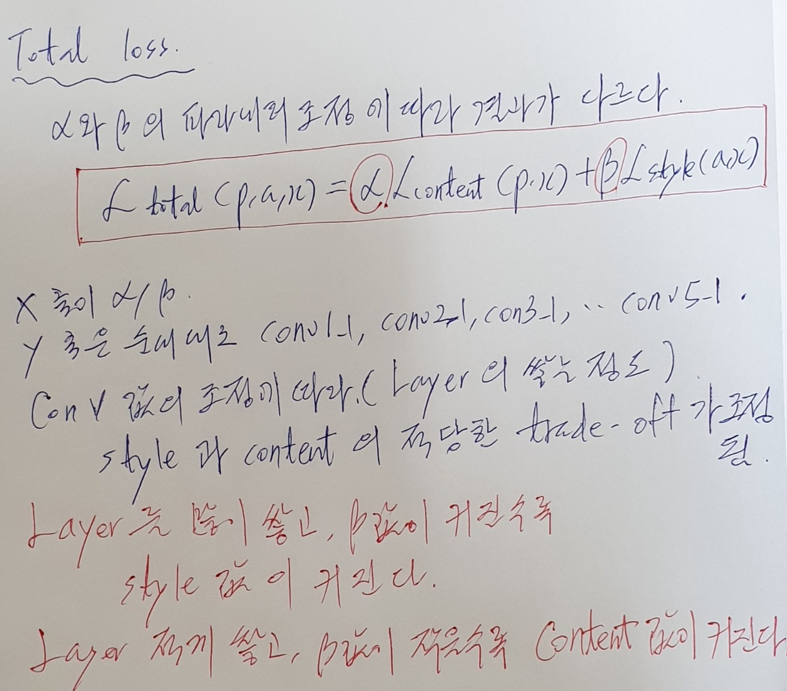 Total loss.
α와 β의 파라메터 조정에 따라 결과가 다르다.
L total (p,a,x) = α L content (p,x) + β L style (a,x)
X 축이 α/β.
Y 축은 순서대로 conv1-1, conv2-1, con3-1, ·· conv5-1.
Conv 값의 조정에 따라. (Layer의 쌓는 정도)
style 과 content 의 적당한 trade-off 가 조정
됨.
Layer를 많이 쌓고, β값이 커질수록
style 값이 커진다.
Layer 적게 쌓고, β값이 작을수록 Content 값이 커진다